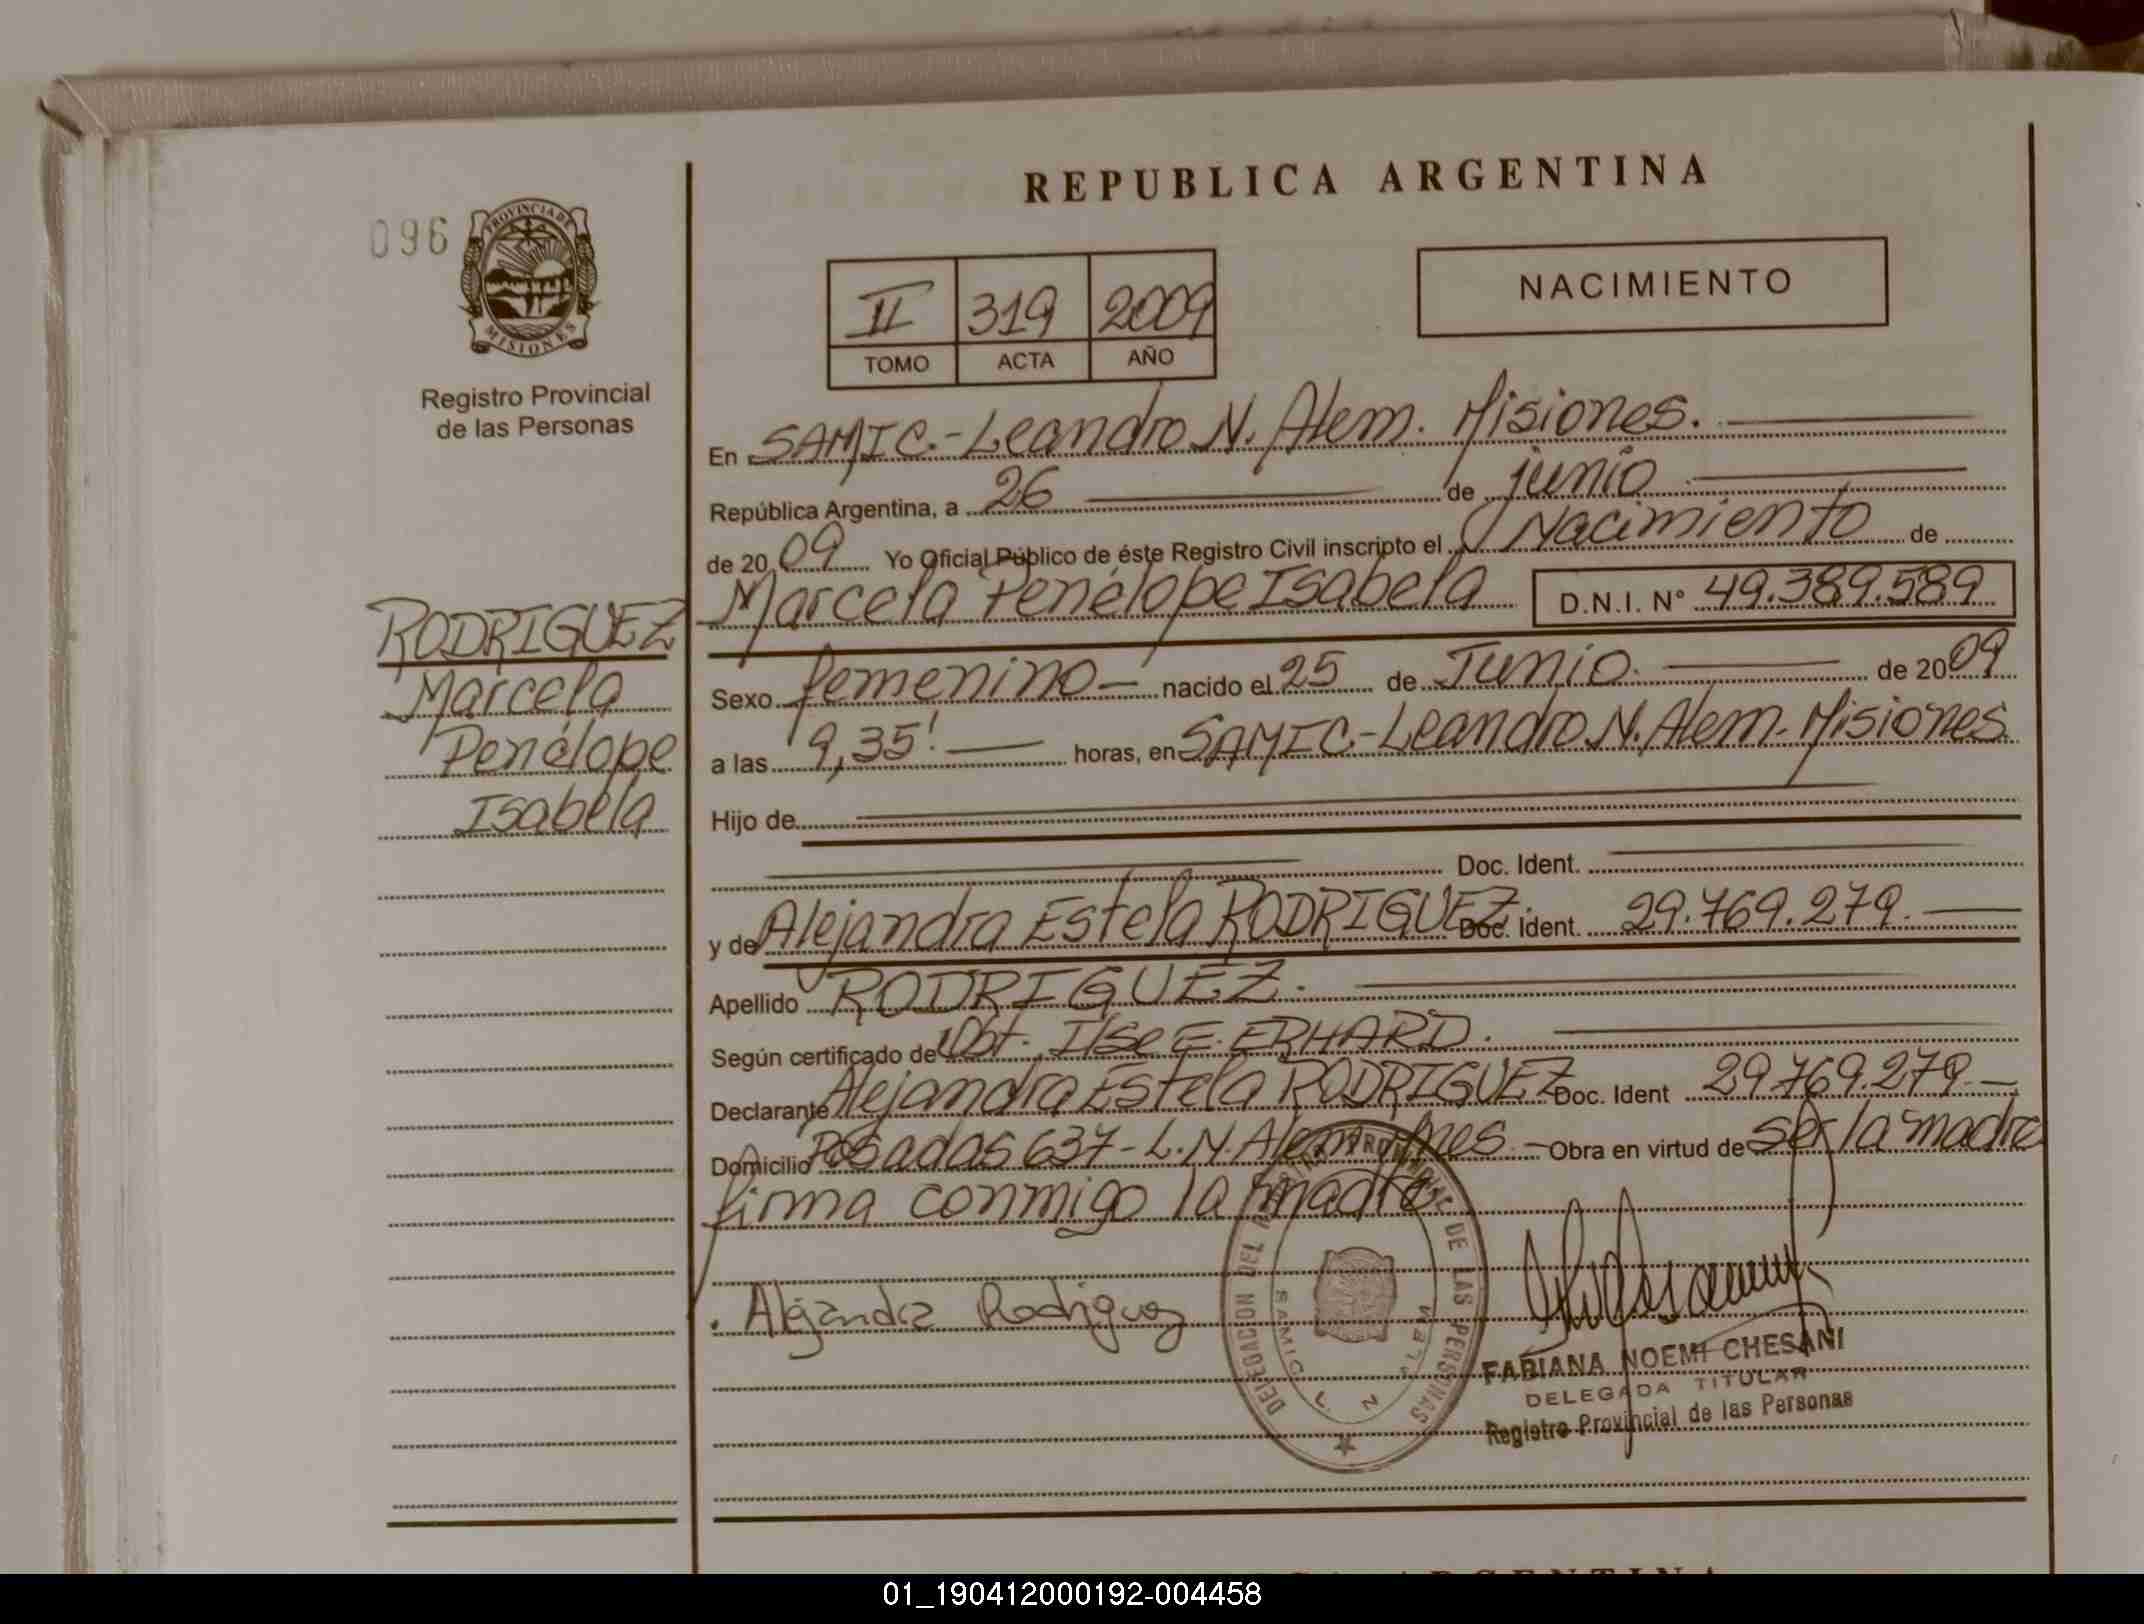 REPUBLICA ARGENTINA
096
PROVINCIA DE
MISIONES
Registro Provincial
de las Personas
NACIMIENTO
II 319 2009
TOMO ACTA AÑO
En SAMIC.-Leandro N. Alem. Misiones.
República Argentina, a 26 de junio
de 2009 Yo Oficial Público de éste Registro Civil inscripto el Nacimiento de
Marcela Penélope Isabela D.N.I. Nº 49.389.589
RODRIGUEZ
Marcela
Penélope
Isabela
Sexo femenino nacido el 25 de Junio. de 2009
a las 9,35! horas, en SAMIC.-Leandro N. Alem.-Misiones.
Hijo de
Doc. Ident.
y de Alejandra Estela RODRIGUEZ. Doc. Ident. 29.769.279.
Apellido RODRIGUEZ.
Según certificado de Obt. Ilse E. ERHARD.
Declarante Alejandra Estela RODRIGUEZ Doc. Ident 29.769.279.-
Domicilio Posadas 637-L.N. Alem Mnes.- Obra en virtud de ser la madre
firma conmigo la madre.
Alejandra Rodriguez
DELEGACION DEL REGISTRO PROVINCIAL DE LAS PERSONAS
SAMIC L. N. ALEM
FABIANA NOEMI CHESANI
DELEGADA TITULAR
Registro Provincial de las Personas
01_190412000192-004458